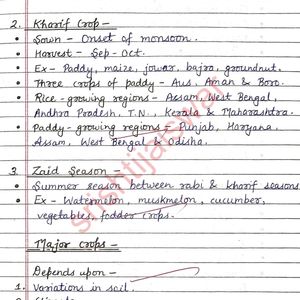 2. Kharif Crop -
• Sown - Onset of monsoon.
• Harvest - Sep - Oct.
• Ex - Paddy, maize, jowar, bajra, groundnut.
• Three crops of paddy - Aus, Aman & Boro.
• Rice - growing regions - Assam, West Bengal,
Andhra Pradesh, T.N., Kerala & Maharashtra.
• Paddy - growing regions - Punjab, Haryana,
Assam, West Bengal & Odisha.
3. Zaid Season -
• Summer season between rabi & kharif seasons
• Ex - Watermelon, muskmelon, cucumber,
vegetables, fodder crops.
Major Crops -
Depends upon -
1. Variations in soil.
srishtijaiswar